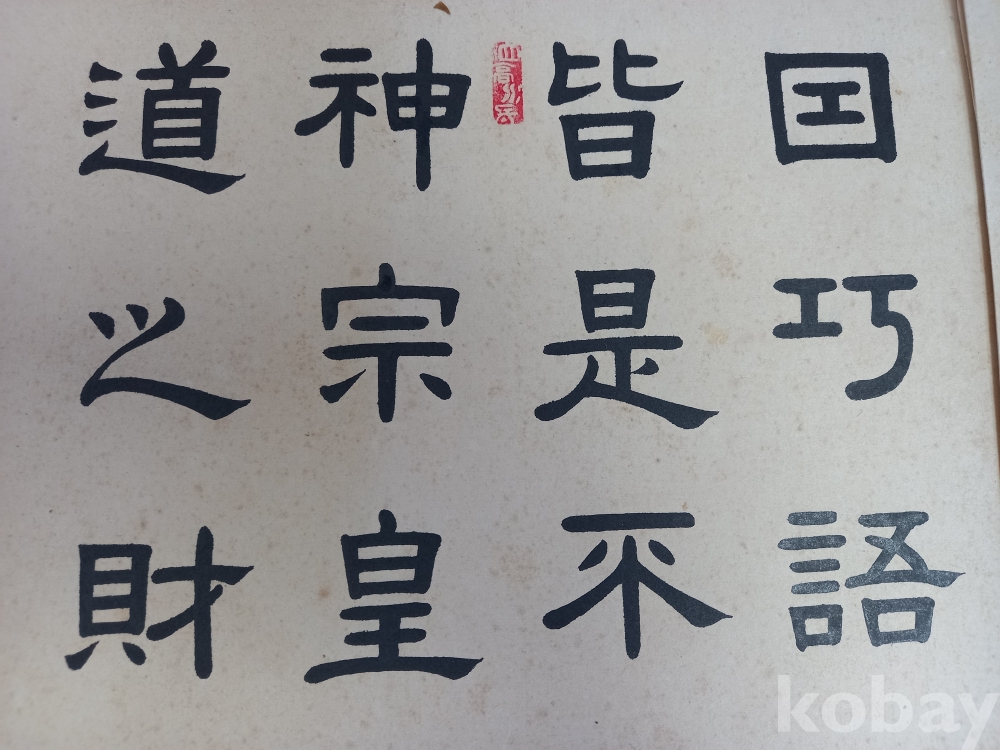 巧語
皆是不
神宗皇
道之財
kobay